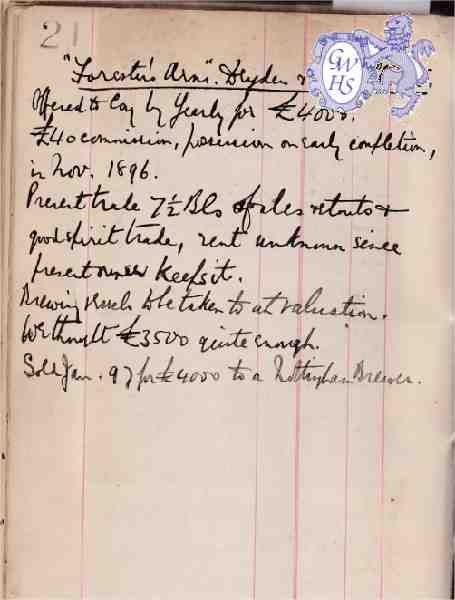 21
"Forester's Arms". Dryden
Offered to Coy by Yearly for £4000.
£40 commission, possession on early completion,
in Nov. 1896.
Present trade 7½ Bls of ales & stouts &
good spirit trade, rent unknown since
present owner keeps it.
Brewing vessels to be taken to at valuation.
We thought £3500 quite enough.
Sold Jan. 97 for £4000 to a Nottingham Brewer.
GW
HS